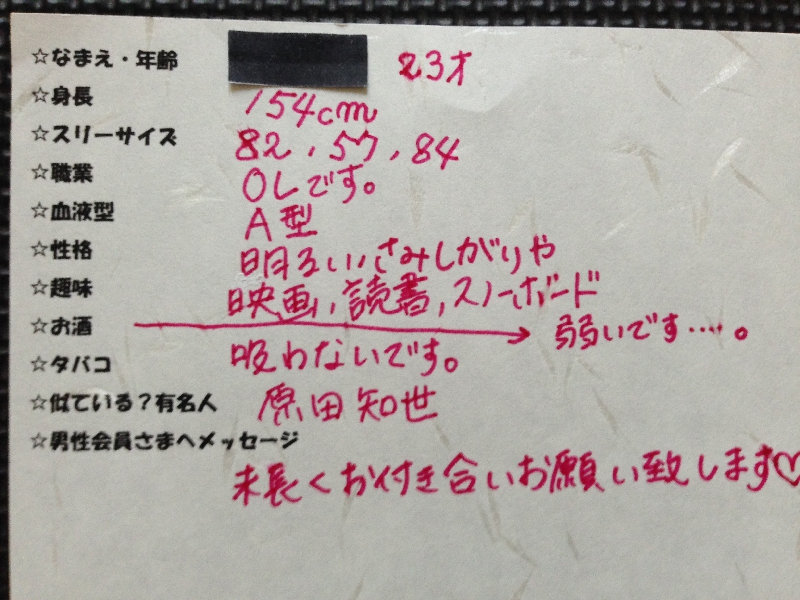 ☆なまえ・年齢 23才
☆身長 154cm
☆スリーサイズ 82,57,84
☆職業 OLです。
☆血液型 A型
☆性格 明るい,さみしがりや
☆趣味 映画,読書,スノーボード
☆お酒 → 弱いです….。
☆タバコ 吸わないです。
☆似ている?有名人 原田知世
☆男性会員さまへメッセージ
末長くお付き合いお願い致します♡